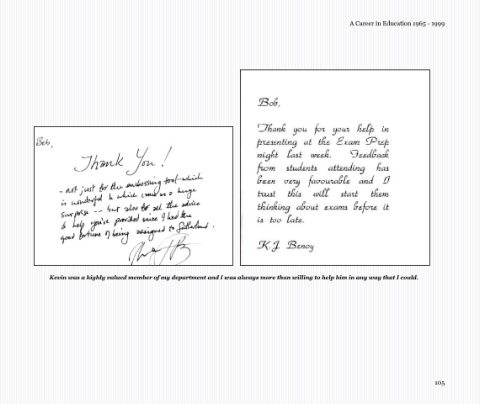 A Career in Education 1965 - 1999
Bob,
Thank You!
- not just for the embossing tool - which
is wonderful & which came as a huge
surprise -- but also for all the advice
& help you've provided since I had the
good fortune of being assigned to Sutherland.
Bob,
Thank you for your help in
presenting at the Exam Prep
night last week. Feedback
from students attending has
been very favourable and I
trust this will start them
thinking about exams before it
is too late.
K.J. Benoy
Kevin was a highly valued member of my department and I was always more than willing to help him in any way that I could.
105